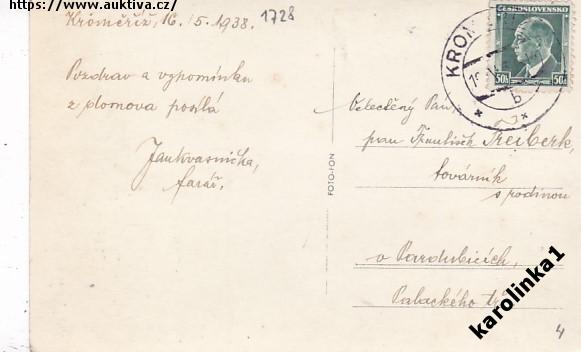 https://www.auktiva.cz/
Kroměříž, 16./5.1938.
1728
Pozdrav a vzpomínku
z domova posílá
Jan Kvasnička,
farář.
FOTO-FON
ČESKOSLOVENSKO
50h
50h
KROM
b
Velectěný Pan
pan František Treiberk,
továrník
s rodinou
v Pardubicích,
Palackého tř
4
karolinka1